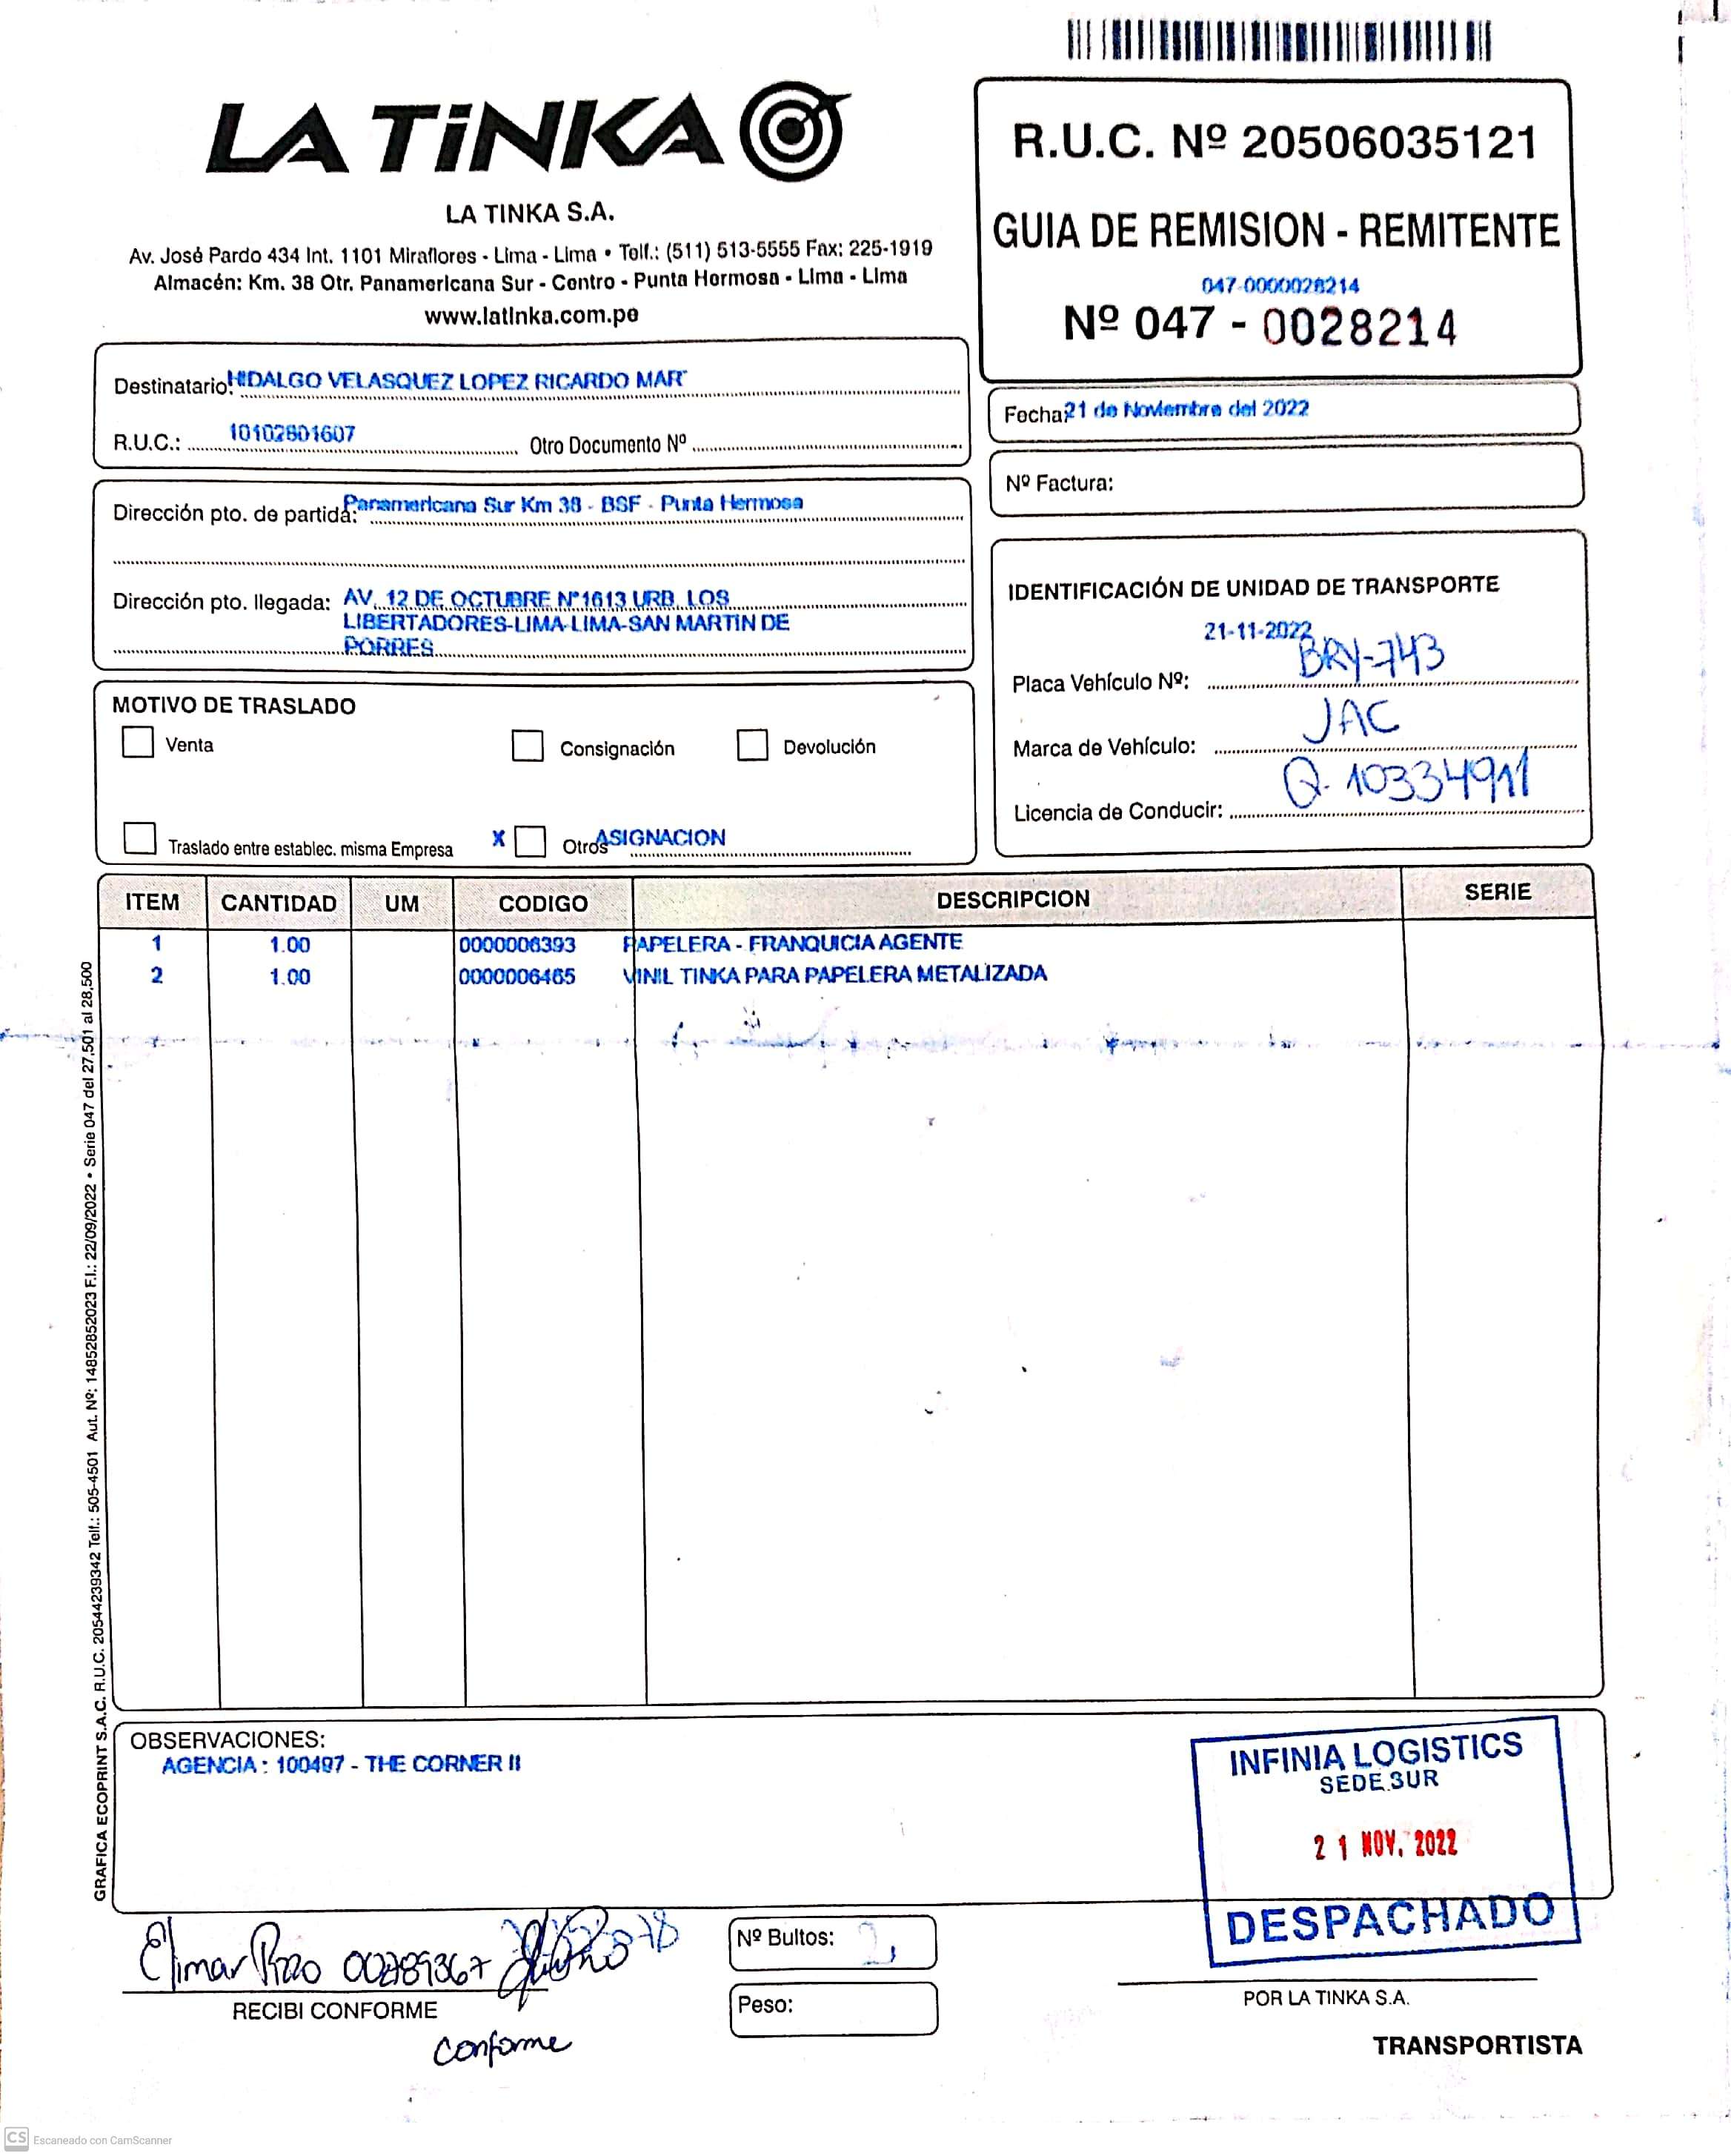 LA TiNKA
LA TINKA S.A.
Av. José Pardo 434 Int. 1101 Miraflores - Lima - Lima • Telf.: (511) 513-5555 Fax: 225-1919
Almacén: Km. 38 Otr. Panamericana Sur - Centro - Punta Hermosa - Lima - Lima
www.latinka.com.pe
R.U.C. Nº 20506035121
GUIA DE REMISION - REMITENTE
047-0000028214
Nº 047 - 0028214
Destinatario: HIDALGO VELASQUEZ LOPEZ RICARDO MAR
R.U.C.: 10102801607 Otro Documento Nº
Fecha: 21 de Noviembre del 2022
Nº Factura:
Dirección pto. de partida: Panamericana Sur Km 38 - BSF - Punta Hermosa
Dirección pto. llegada: AV. 12 DE OCTUBRE N°1613 URB. LOS
LIBERTADORES-LIMA-LIMA-SAN MARTIN DE
PORRES
IDENTIFICACIÓN DE UNIDAD DE TRANSPORTE
21-11-2022
Placa Vehículo Nº: BRY-743
Marca de Vehículo: JAC
Licencia de Conducir: Q. 10334911
MOTIVO DE TRASLADO
Venta Consignación Devolución
Traslado entre establec. misma Empresa X Otros ASIGNACION
ITEM CANTIDAD UM CODIGO DESCRIPCION SERIE
1 1.00 0000006393 PAPELERA - FRANQUICIA AGENTE
2 1.00 0000006465 VINIL TINKA PARA PAPELERA METALIZADA
GRAFICA ECOPRINT S.A.C. R.U.C. 20544239342 Telf.: 505-4501 Aut. Nº: 14852852023 F.I.: 22/09/2022 • Serie 047 del 27,501 al 28,500
OBSERVACIONES:
AGENCIA : 100497 - THE CORNER II
INFINIA LOGISTICS
SEDE SUR
21 NOV. 2022
DESPACHADO
Elimar 
RECIBI CONFORME
Conforme
Nº Bultos: 2
Peso:
POR LA TINKA S.A.
TRANSPORTISTA
CS Escaneado con CamScanner